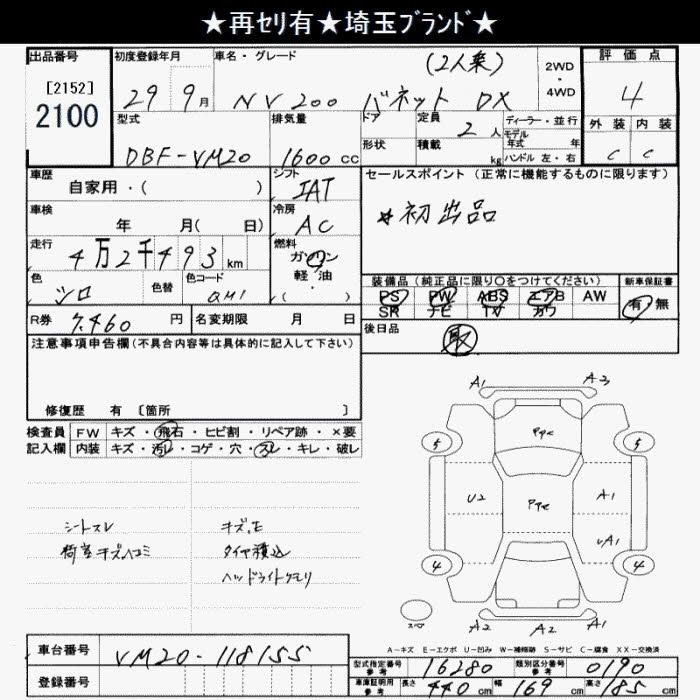 ★再セリ有★埼玉ﾌﾞﾗﾝﾄﾞ★
出品番号
[2152]
2100
初度登録年月
29 9月
車名・グレード
(2人乗)
NV200 バネット DX
2WD
・
4WD
評価点
4
外装 内装
C C
型式
DBF-VM20
排気量
1600cc
ドア
形状
定員
2人
積載
kg
ディーラー・並行
モデル
年式 年
ハンドル 左・右
車歴
自家用・( )
シフト
IAT
車検
年 月( 日)
冷房
AC
走行
4万2千493km
燃料
ガソリン
軽・油
・( )
色
シロ
色替
色コード
QM1
R券
7,460円
名変期限 月 日
セールスポイント(正常に機能するものに限ります)
*初出品
装備品(純正品に限り〇をつけてください)
PS PW ABS エアB AW
SR ナビ TV カワ
新車保証書
有・無
後日品
取
注意事項申告欄(不具合内容等は具体的に記入して下さい)
修復歴 有〔箇所 〕
検査員
記入欄
FW キズ・飛石・ヒビ割・リペア跡・×要
内装 キズ・汚レ・コゲ・穴・スレ・キレ・破レ
シートスレ
荷室キズヘコミ
キズ,E
タイヤ積込
ヘッドライトクモリ
A1 A3
5 PPC 5
U2 PPC A1
UA1
4 4
スペ
A2 A2 A1
A-キズ E-エクボ U-凹み W-補修跡 S-サビ C-腐食 XX-交換済
車台番号
VM20-118155
登録番号
型式指定番号
参考
16280
類別区分番号
参考
0190
車庫証明用
参考
長さ 440cm
幅 169cm
高さ 185cm